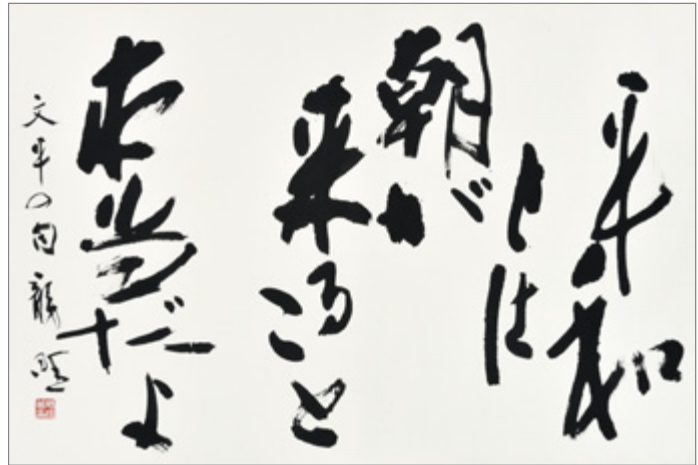 平和
とは
朝が
来ること
本当だよ
文平の句